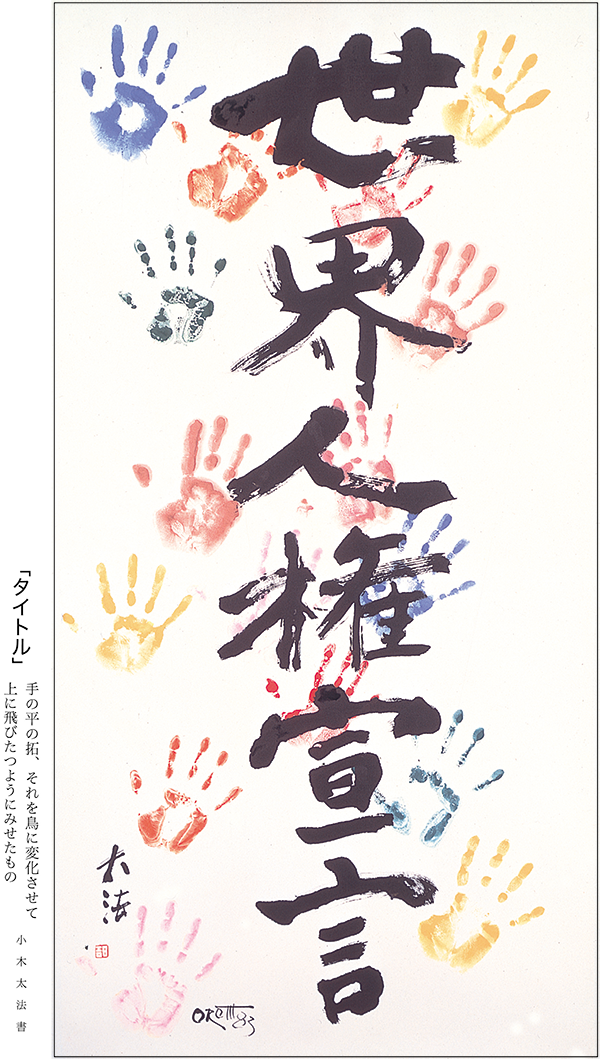 世界人権宣言
太法
「タイトル」
手の平の拓、それを鳥に変化させて
上に飛びたつようにみせたもの
小木太法書